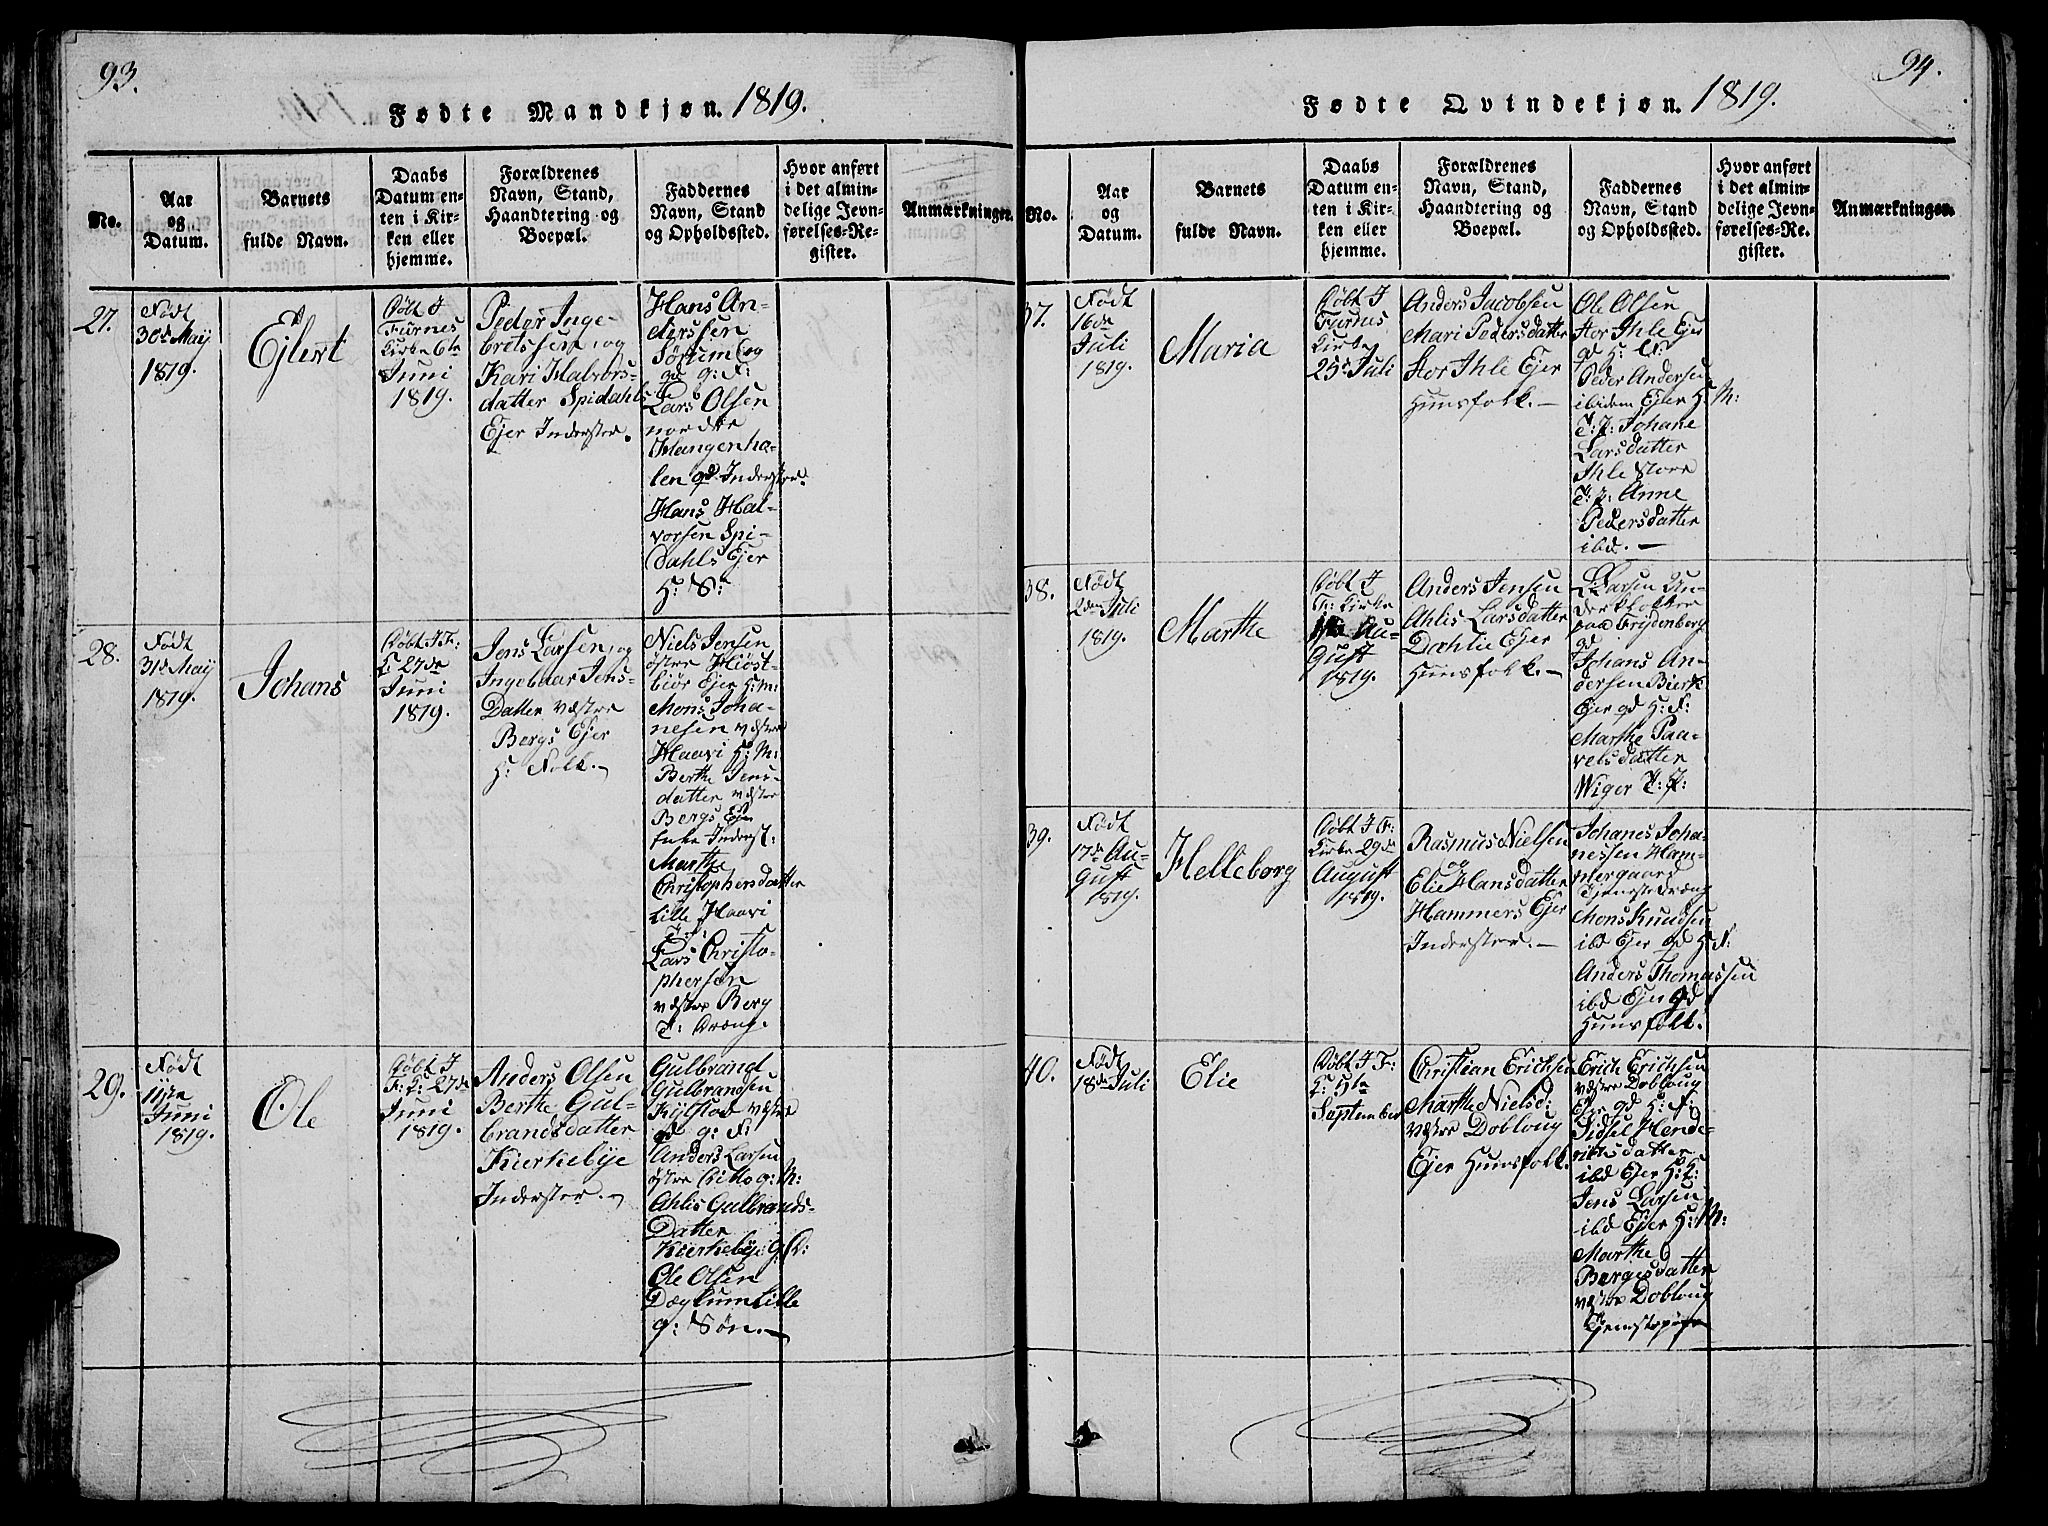 93.
Fødte Mandkjøn. 1819.
No.
Aar
og
Datum.
Barnets
fulde Navn.
Daabs
Datum en-
ten i Kir-
ken eller
hjemme.
Forældrenes
Navn, Stand,
Haandtering og
Boepæl.
Faddernes
Navn, Stand
og Opholdssted.
Hvor anført
i det almin-
delige Jevn-
førelses-Re-
gister.
Anmærkninger.
27.
Født
30d. Maij
1819.
Ejlert
Døbt I
Furnes
Kirke 6te
Juni
1819.
Peder Inge-
bretssen, og
Kari Halvors-
datter Spidahls
Ejer Inderster.
Hans An-
derssen
Sørum og
gd g: F:
Lars Olsen
nordre
Hangenho-
len gd Inderster.
Hans Hal-
vorsen Spi-
dahls Ejer
H: S:
28.
Født
31d. Maij
1819.
Johans
Døbt I F:
K 27de
Juni
1819.
Jens Larsen, og
Ingebaar Jens-
Datter væstre
Bergs Ejer
H: Folk.
Niels Jensen
østre Hiøst-
biør Ejer H: M:
Mons Joha-
nesen væstre
Haavi H: M:
Berthe Jens-
datter væstre
Bergs Ejer
Enke Inderst:
Marthe
Christophersdatter
lille Haavi
T: P:
Lars Christo-
phersøn
væstre Berg
T: Dræng.
29.
Født
11te
Juni
1819.
Ole
Døbt I
F: K: 27de
Juni
1819.
Anders Olsen
Berthe Gul-
brandsdatter
Kierkebye
Inderster.
Gulbrand
Gulbrandsen
Kylstad væstre
gd g: F:
Anders Larsen
østre Ditto g: M:
Ahlis Gulbrands-
Datter
Kierkebye g: K:
Ole Olsen
Døglum lille
g: Søn.
94.
Fødte Qvindekjøn. 1819.
No.
Aar
og
Datum.
Barnets
fulde Navn.
Daabs
Datum en-
ten i Kir-
ken eller
hjemme.
Forældrenes
Navn, Stand,
Haandtering og
Boepæl.
Faddernes
Navn, Stand
og Opholdssted.
Hvor anført
i det almin-
delige Jevn-
førelses-Re-
gister.
Anmærkninger.
37.
Født
16de
Juli
1819.
Maria
Døbt I
Furnes
Kirke
25d. Juli
Anders Jacobsen
Mari Pedersdatter
Stor Ihle Ejer
Huusfolk.
Ole Olsen
Stor Ihle Ejer
gd H: F:
Peder Andersen
ibidem Ejer H: M:
T: P: Johane
Larsdatter
Ihle Store
T: P: Anne
Pedersdatter
ibd.
38.
Født
2den Juli
1819.
Marthe
Døbt I
F: Kirke
1ste Au-
gust
1819.
Anders Jensen
Ahlis Larsdatter
Dæhlie Ejer
Huusfolk.
L: Larsen Un-
derklokker
paa Frydenberg
gd
Johans An-
dersen Bierke
Ejer gd H: F:
Marthe Paa-
velsdatter
Wiger T: P:
39.
Født
17de Au-
gust
1819.
Helleborg
Døbt I F:
Kirke 29de
August
1819.
Rasmus Nielsen
og
Elie Hansdatter
Hammers Ejer
Inderster.
Johanes Joha-
nessen Ham-
mergaard
Tjenestedræng
Mons Knudsen
ibd Ejer gd H: F:
Anders Thomassen
ibd Ejer gd
Huusfolk.
40.
Født
18de Juli
Elie
Døbt I F:
K: 5te
September
Christian Erichsen
Marthe Nielsd:
væstre Dobloug
Ejer Huusfolk.
Erich Erichsen
væstre Dobloug
Ejer gd H: F:
Sidsel Hende-
richsdatter
ibd Ejer H: K:
Jens Larsen
ibd Ejer H: M:
Marthe
Børgesdatter
væstre Dobloug
Tjenestepige